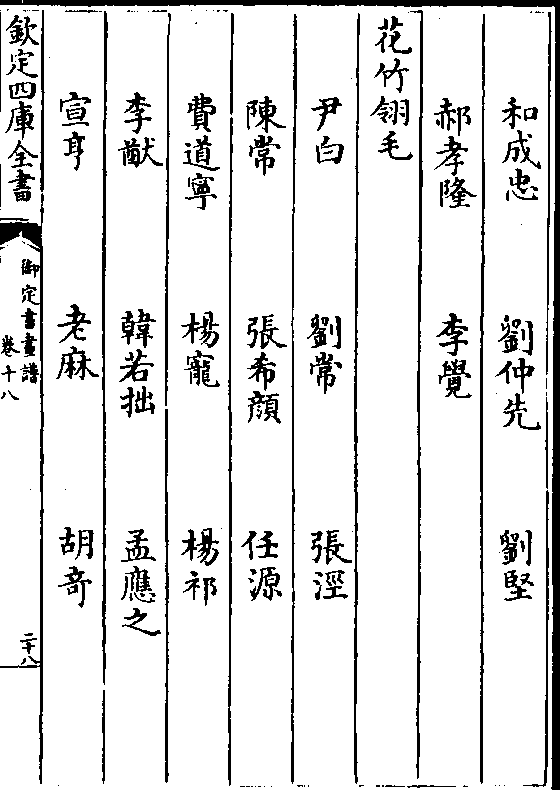 和成忠 劉仲先 劉堅
郝孝隆 李覺
花竹翎毛
尹白 劉常 張涇
陳常 張希顔 任源
費道寧 楊寵 楊祁
李猷 韓若拙 孟應之
宣亨 老麻 胡竒
欽定四庫全書
御定書畫譜
卷十八
二十八